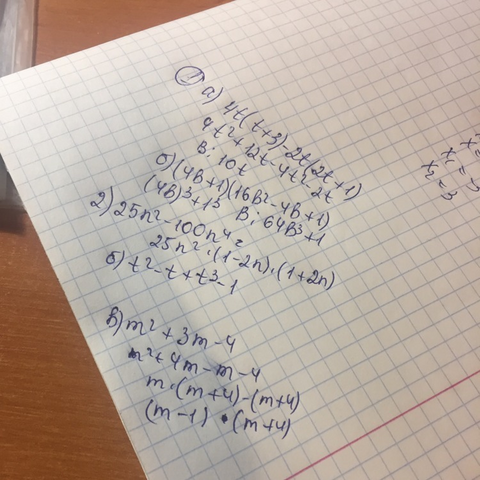 ① а) 4t(t+3)-2t(2t+1)
4t²+12t-4t²-2t
В: 10t
б) (4B+1)(16B²-4B+1)
(4B)³+1³ В: 64B³+1
2) 25n²-100n⁴=
25n²·(1-2n)·(1+2n)
б) t²-t+t³-1
в) m²+3m-4
m²+4m-m-4
m·(m+4)-(m+4)
(m-1)·(m+4)
x₂=3